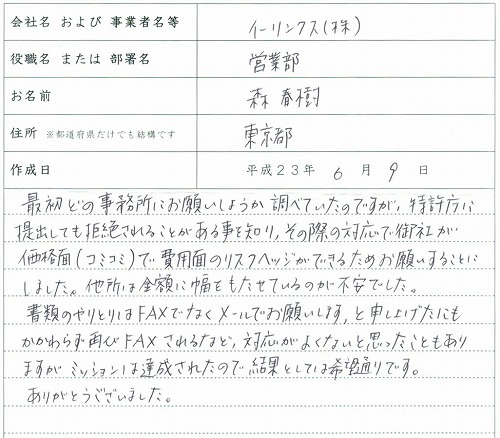 会社名 および 事業者名等 イーリンクス(株)
役職名 または 部署名 営業部
お名前 森 春樹
住所 ※都道府県だけでも結構です 東京都
作成日 平成23年 6 月 9 日
最初どの事務所にお願いしようか調べていたのですが、特許庁に
提出しても拒絶されることがある事を知り、その際の対応で御社が
価格面(コミコミ)で費用面のリスクヘッジができるためお願いすることに
しました。他所は金額に幅をもたせているのが不安でした。
書類のやりとりはFAXでなくメールでお願いします、と申し上げたにも
かかわらず再びFAXされるなど、対応がよくないと思ったこともあり
ますがミッションは達成されたので結果としては希望通りです。
ありがとうございました。